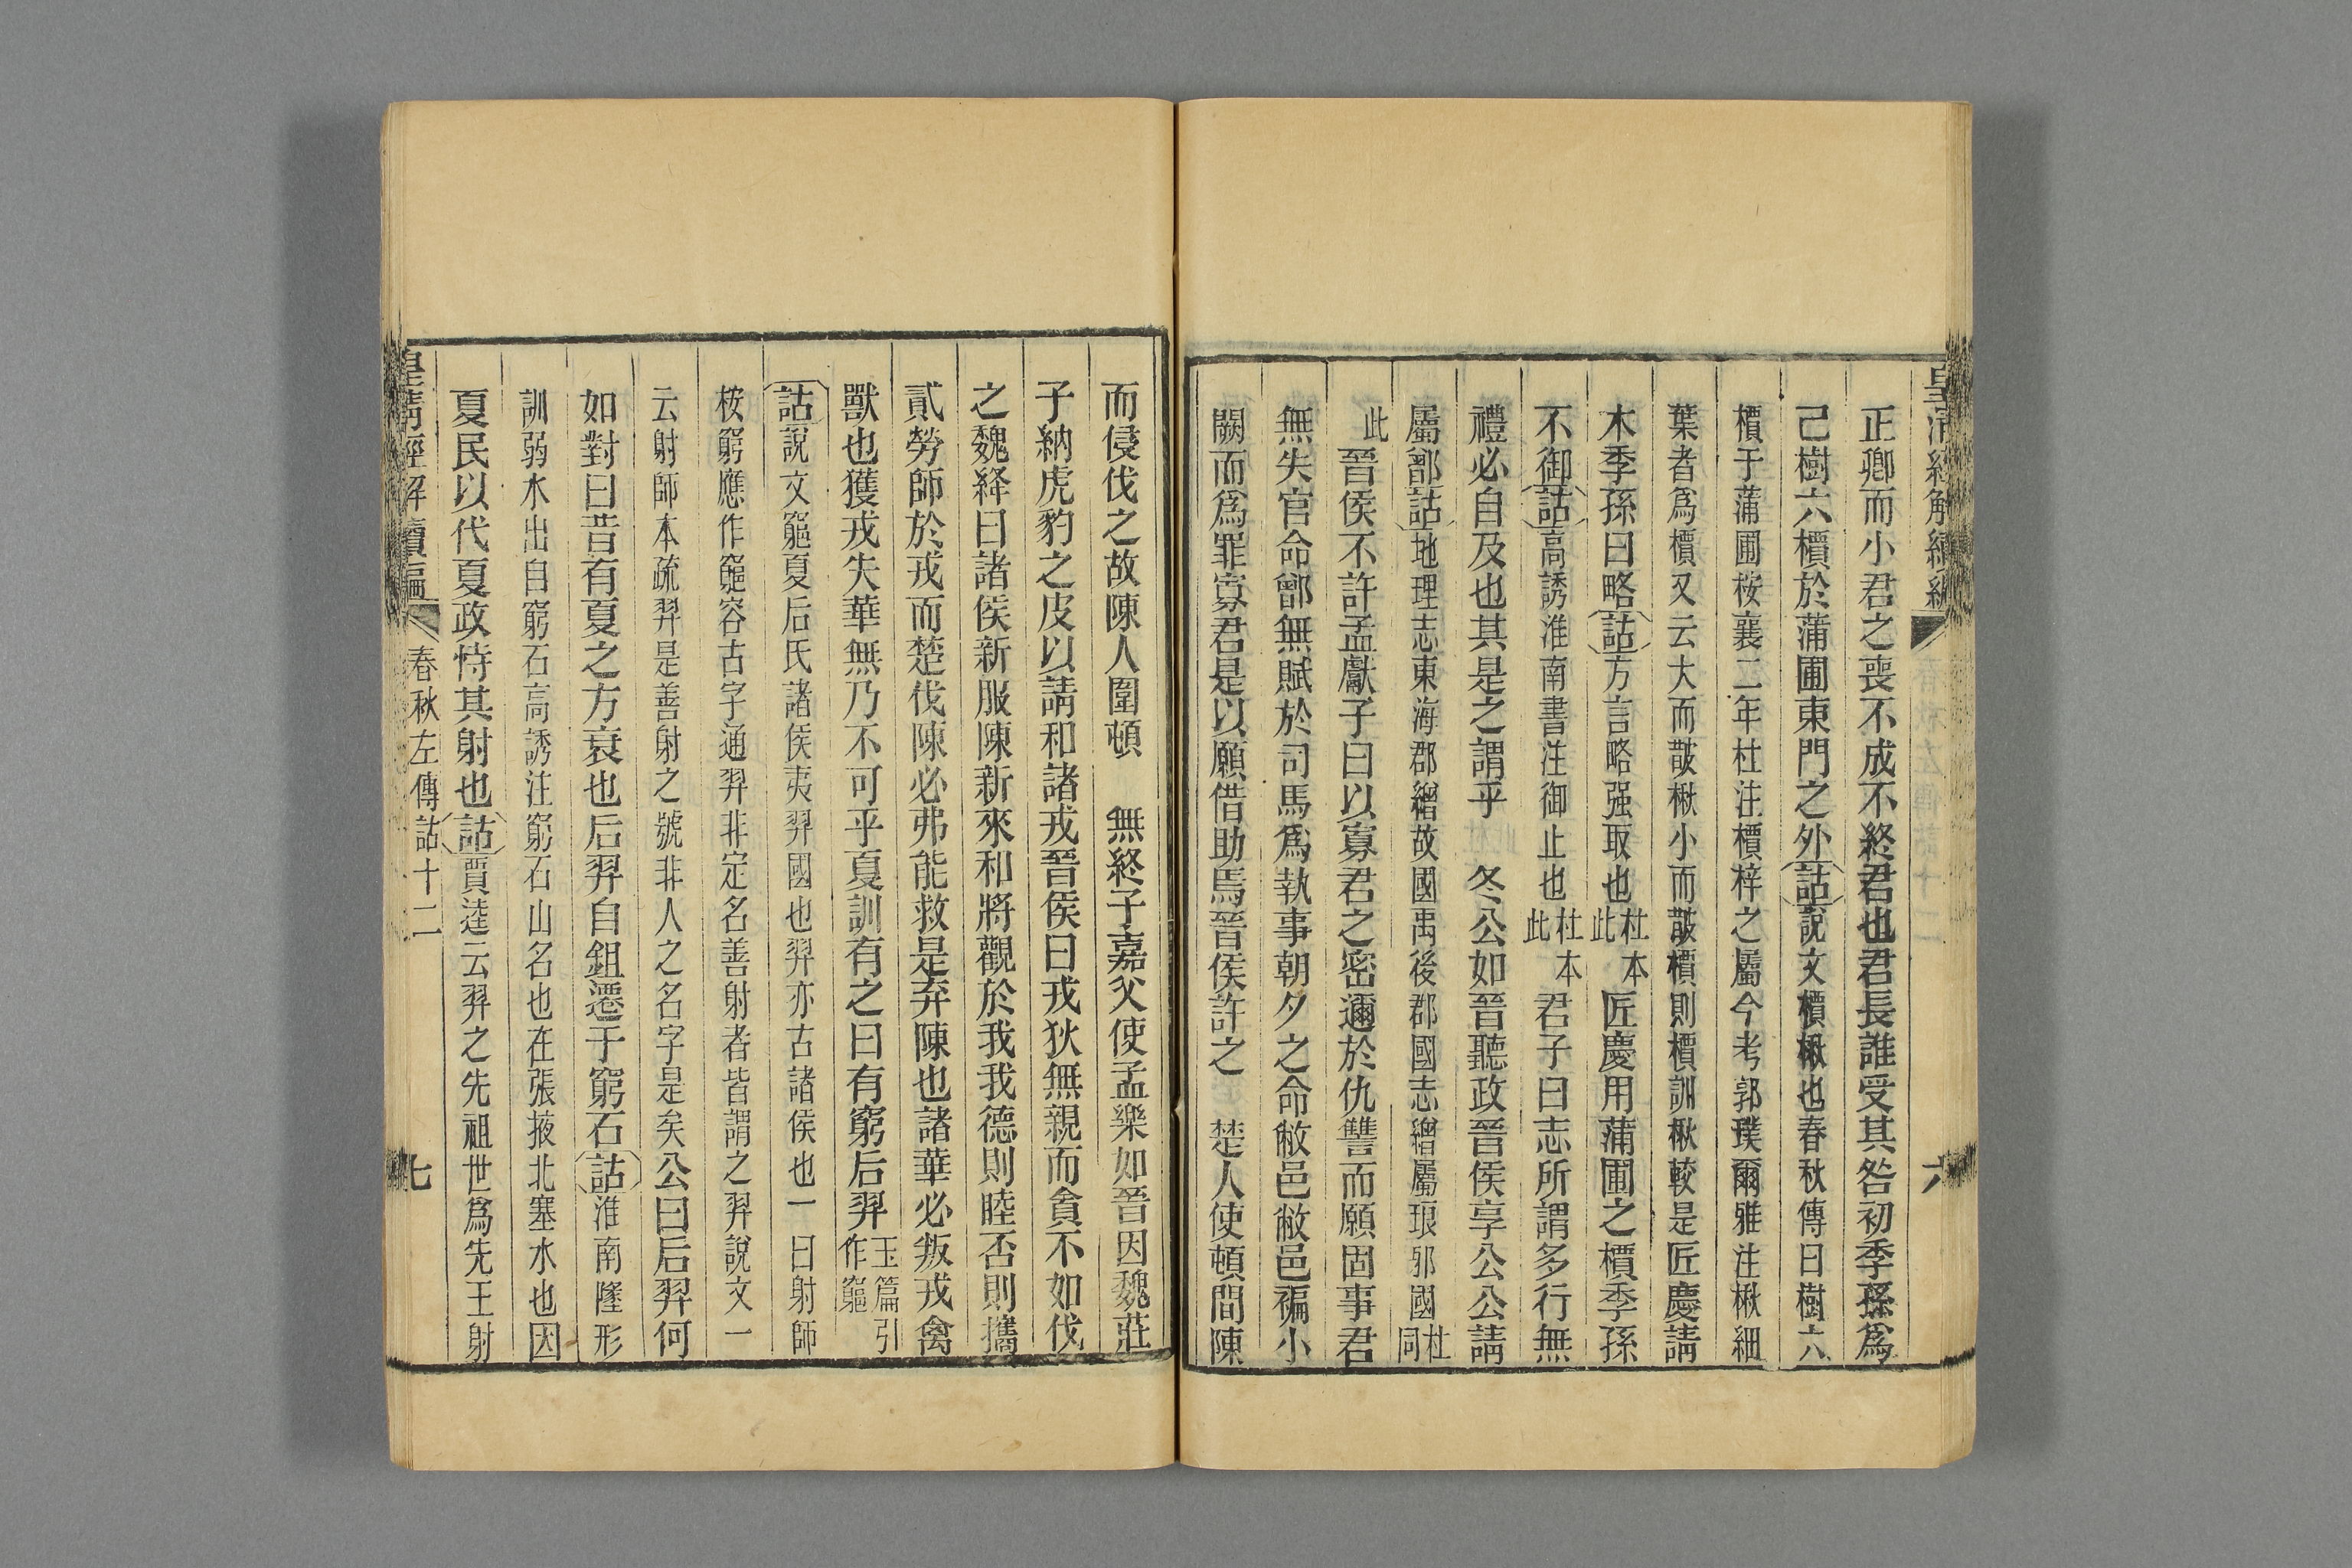 皇清經解續編
六
正卿而小君之喪不成不終君也君長誰受其咎初季孫爲
己樹六檟於蒲圃東門之外詁說文檟楸也春秋傳曰樹六
檟于蒲圃桉襄二年杜注檟梓之屬今考郭璞爾雅注楸細
葉者爲檟又云大而皵楸小而皵檟則檟訓楸較是匠慶請
木季孫曰略詁方言略强取也杜本此匠慶用蒲圃之檟季孫
不御詁高誘淮南書注御止也杜本此君子曰志所謂多行無
禮必自及也其是之謂乎　冬公如晉聽政晉侯享公公請
屬鄫詁地理志東海郡繒故國禹後郡國志繒屬琅邪國杜同
此
晉侯不許孟獻子曰以寡君之密邇於仇讐而願固事君
無失官命鄫無賦於司馬爲執事朝夕之命敝邑敝邑褊小
闕而爲罪寡君是以願借助焉晉侯許之　楚人使頓間陳
而侵伐之故陳人圍頓　無終子嘉父使孟樂如晉因魏莊
子納虎豹之皮以請和諸戎晉侯曰戎狄無親而貪不如伐
之魏絳曰諸侯新服陳新來和將觀於我我德則睦否則攜
貳勞師於戎而楚伐陳必弗能救是弃陳也諸華必叛戎禽
獸也獲戎失華無乃不可乎夏訓有之曰有窮后羿玉篇引作竆
詁說文竆夏后氏諸侯夷羿國也羿亦古諸侯也一曰射師
桉窮應作竆容古字通羿非定名善射者皆謂之羿說文一
云射師本疏羿是善射之號非人之名字是矣公曰后羿何
如對曰昔有夏之方衰也后羿自鉏遷于窮石詁淮南隆形
訓弱水出自窮石高誘注窮石山名也在張掖北塞水也因
夏民以代夏政恃其射也詁賈逵云羿之先祖世爲先王射
皇清經解續編　春秋左傳詁十二
七